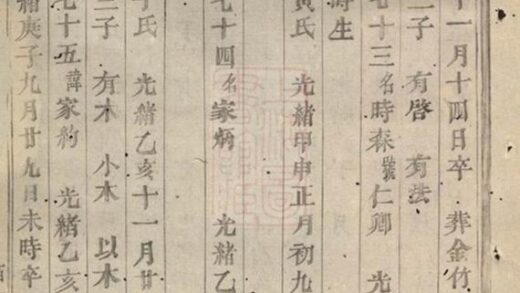 十一月十四日卒 葬金竹
二子 有啓 有法
七十三 名時森 號仁卿 光
時生
黃氏 光緒甲申正月初九
七十四 名家炳 光緒乙
氏 光緒乙亥十一月廿
子 有木 小木 以木
七十五 諱家約 光緒乙亥
緒庚子九月廿九日未時卒